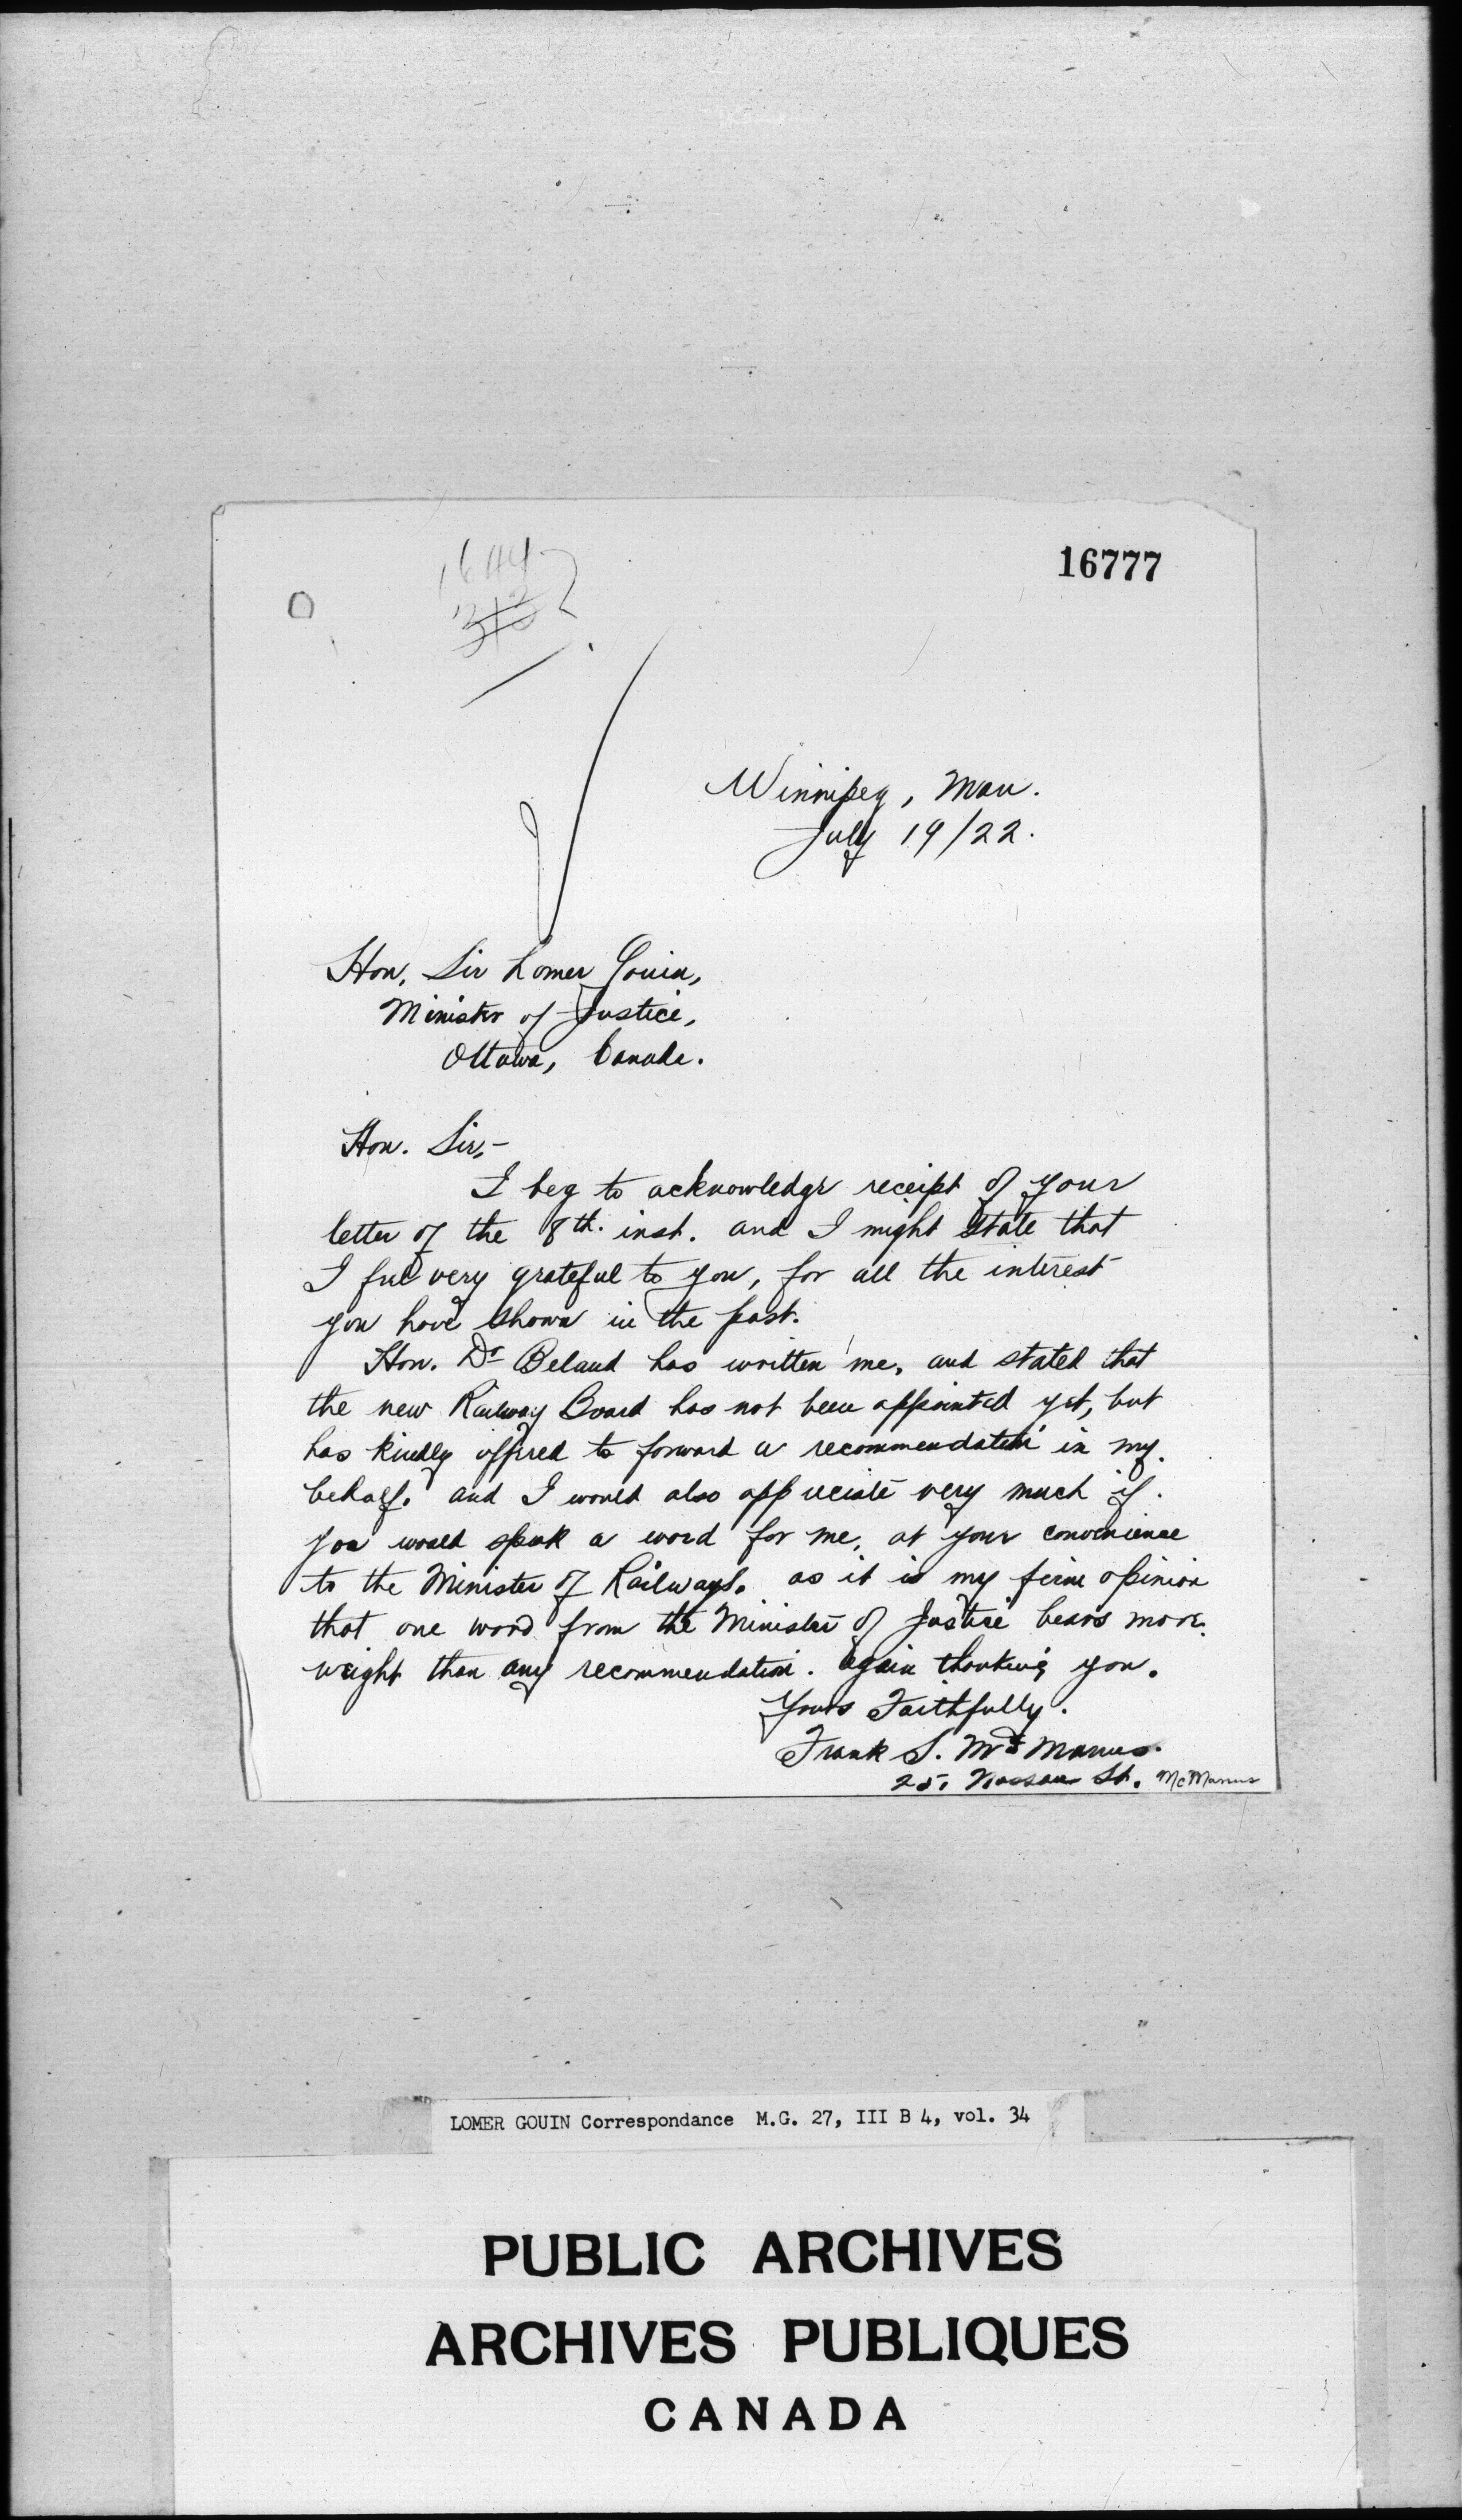 16777
Winnipeg, Man.
July 19/22.
Hon. Sir Lomer Gouin,
Minister of Justice,
Ottawa, Canada.
Hon. Sir,-
I beg to acknowledge receipt of your
letter of the 8th. inst. and I might state that
I feel very grateful to you, for all the interest
you have shown in the past.
Hon. Dr Beland has written me, and stated that
the new Railway Board has not been appointed yet, but
has kindly offered to forward a recommendation in my
behalf. and I would also appreciate very much if
you would speak a word for me, at your convenience
to the Minister of Railways. as it is my firm opinion
that one word from the Minister of Justice bears more
weight than any recommendation. Again thanking you.
Yours Faithfully.
Frank S. McManus.
25, Nassau St. McManus
LOMER GOUIN Correspondance M.G. 27, III B 4, vol. 34
PUBLIC ARCHIVES
ARCHIVES PUBLIQUES
CANADA